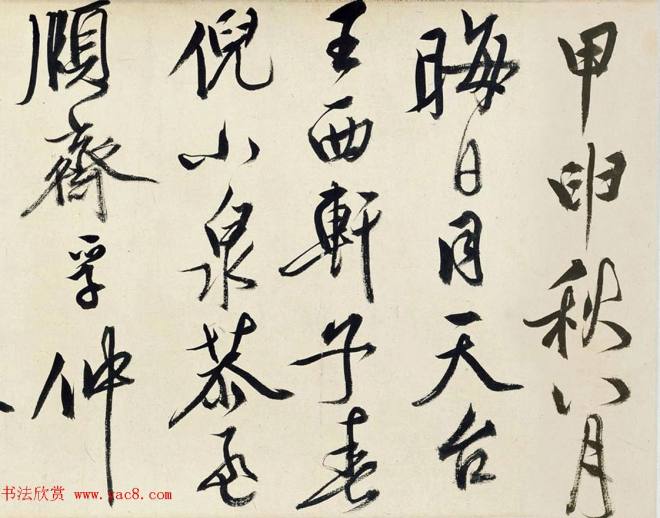 甲申秋八月
晦日同天台
王西軒子春
倪小泉恭
順齋孚仲
书法欣赏 www.yac8.com